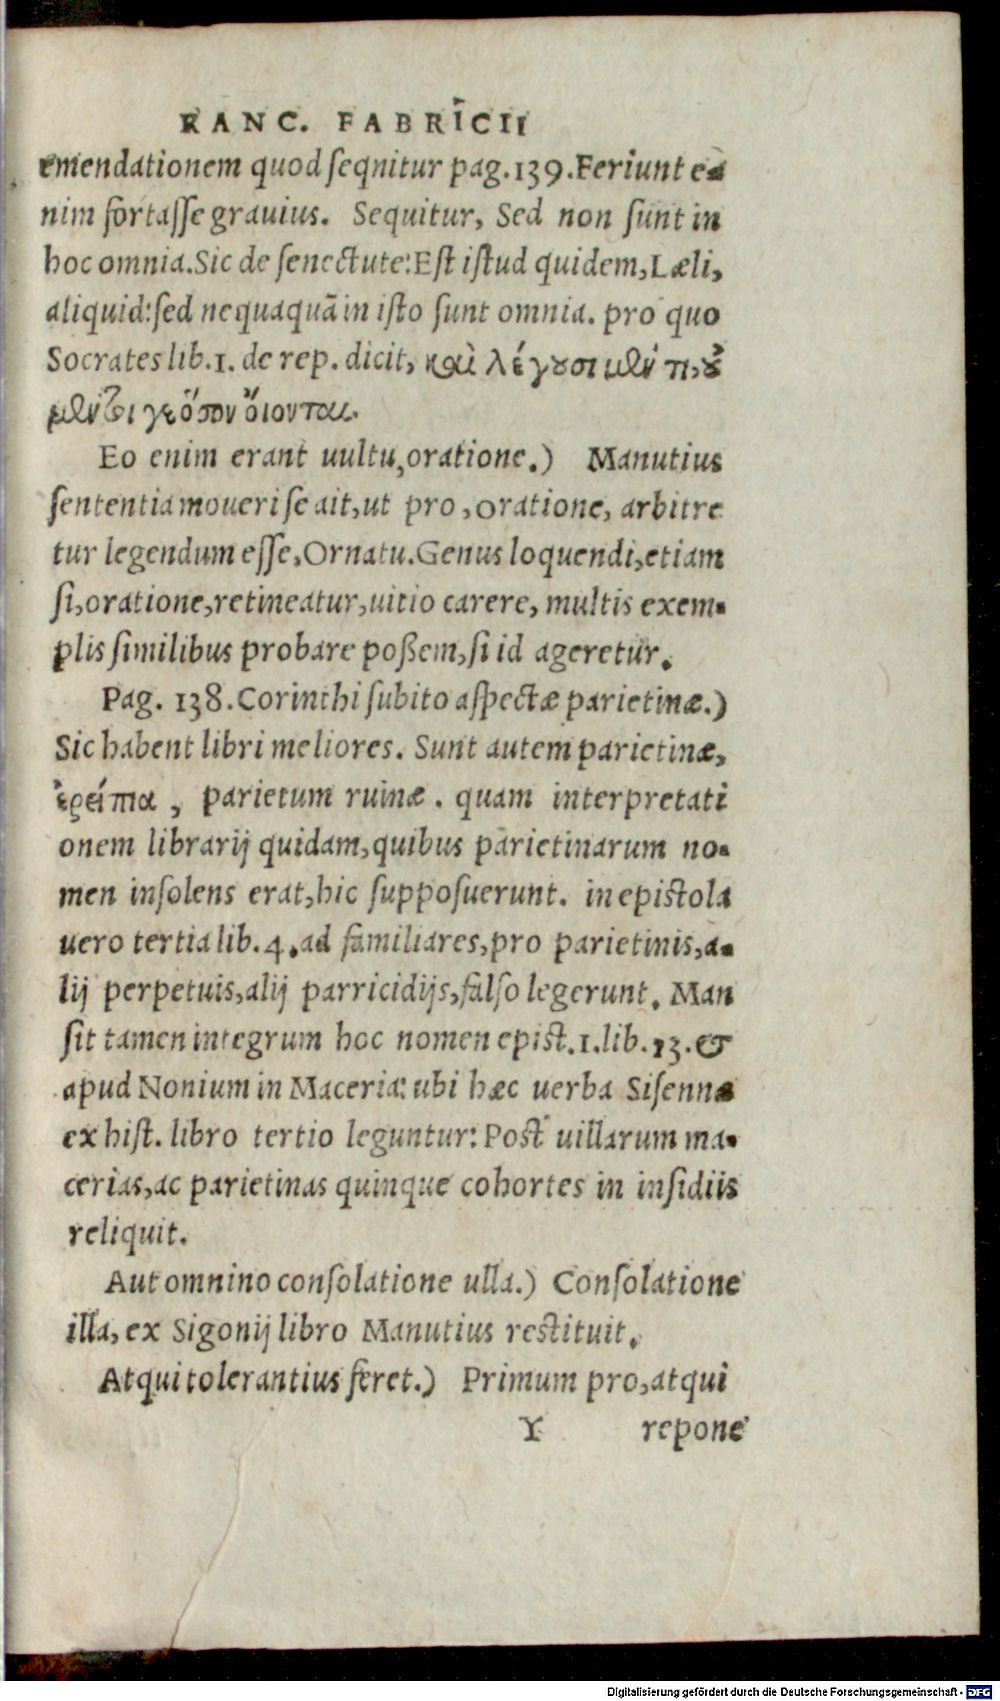 RANC. FABRICII
emendationem quod seqnitur pag.139.Feriunt e-
nim fortasse grauius. Sequitur, Sed non sunt in
hoc omnia.Sic de senectute:Est istud quidem,Læli,
aliquid:sed nequaquā in isto sunt omnia. pro quo
Socrates lib.1. de rep. dicit, καὶ λέγουσι μὲν τι,οὐ
μέντοι γε ὅσον ὄιονται.
Eo enim erant uultu,oratione.) Manutius
sententia moueri se ait,ut pro ,oratione, arbitre
tur legendum esse,Ornatu.Genus loquendi,etiam
si,oratione,retineatur,uitio carere, multis exem-
plis similibus probare poßem,si id ageretur.
Pag. 138.Corinthi subito aspectæ parietinæ.)
Sic habent libri meliores. Sunt autem parietinæ,
ἐρείπια , parietum ruinæ . quam interpretati
onem librarij quidam,quibus parietinarum no-
men insolens erat,hic supposuerunt. in epistola
uero tertia lib.4.ad familiares,pro parietinis,a-
lij perpetuis,alij parricidijs,falso legerunt. Man
sit tamen integrum hoc nomen epist.1.lib.13.&
apud Nonium in Maceria: ubi hæc uerba Sisennæ
ex hist. libro tertio leguntur: Post uillarum ma-
cerias,ac parietinas quinque cohortes in insidiis
reliquit.
Aut omnino consolatione ulla.) Consolatione
illa, ex Sigonij libro Manutius restituit.
Atqui tolerantius feret.) Primum pro,atqui
Y repone
Digitalisierung gefördert durch die Deutsche Forschungsgemeinschaft - DFG